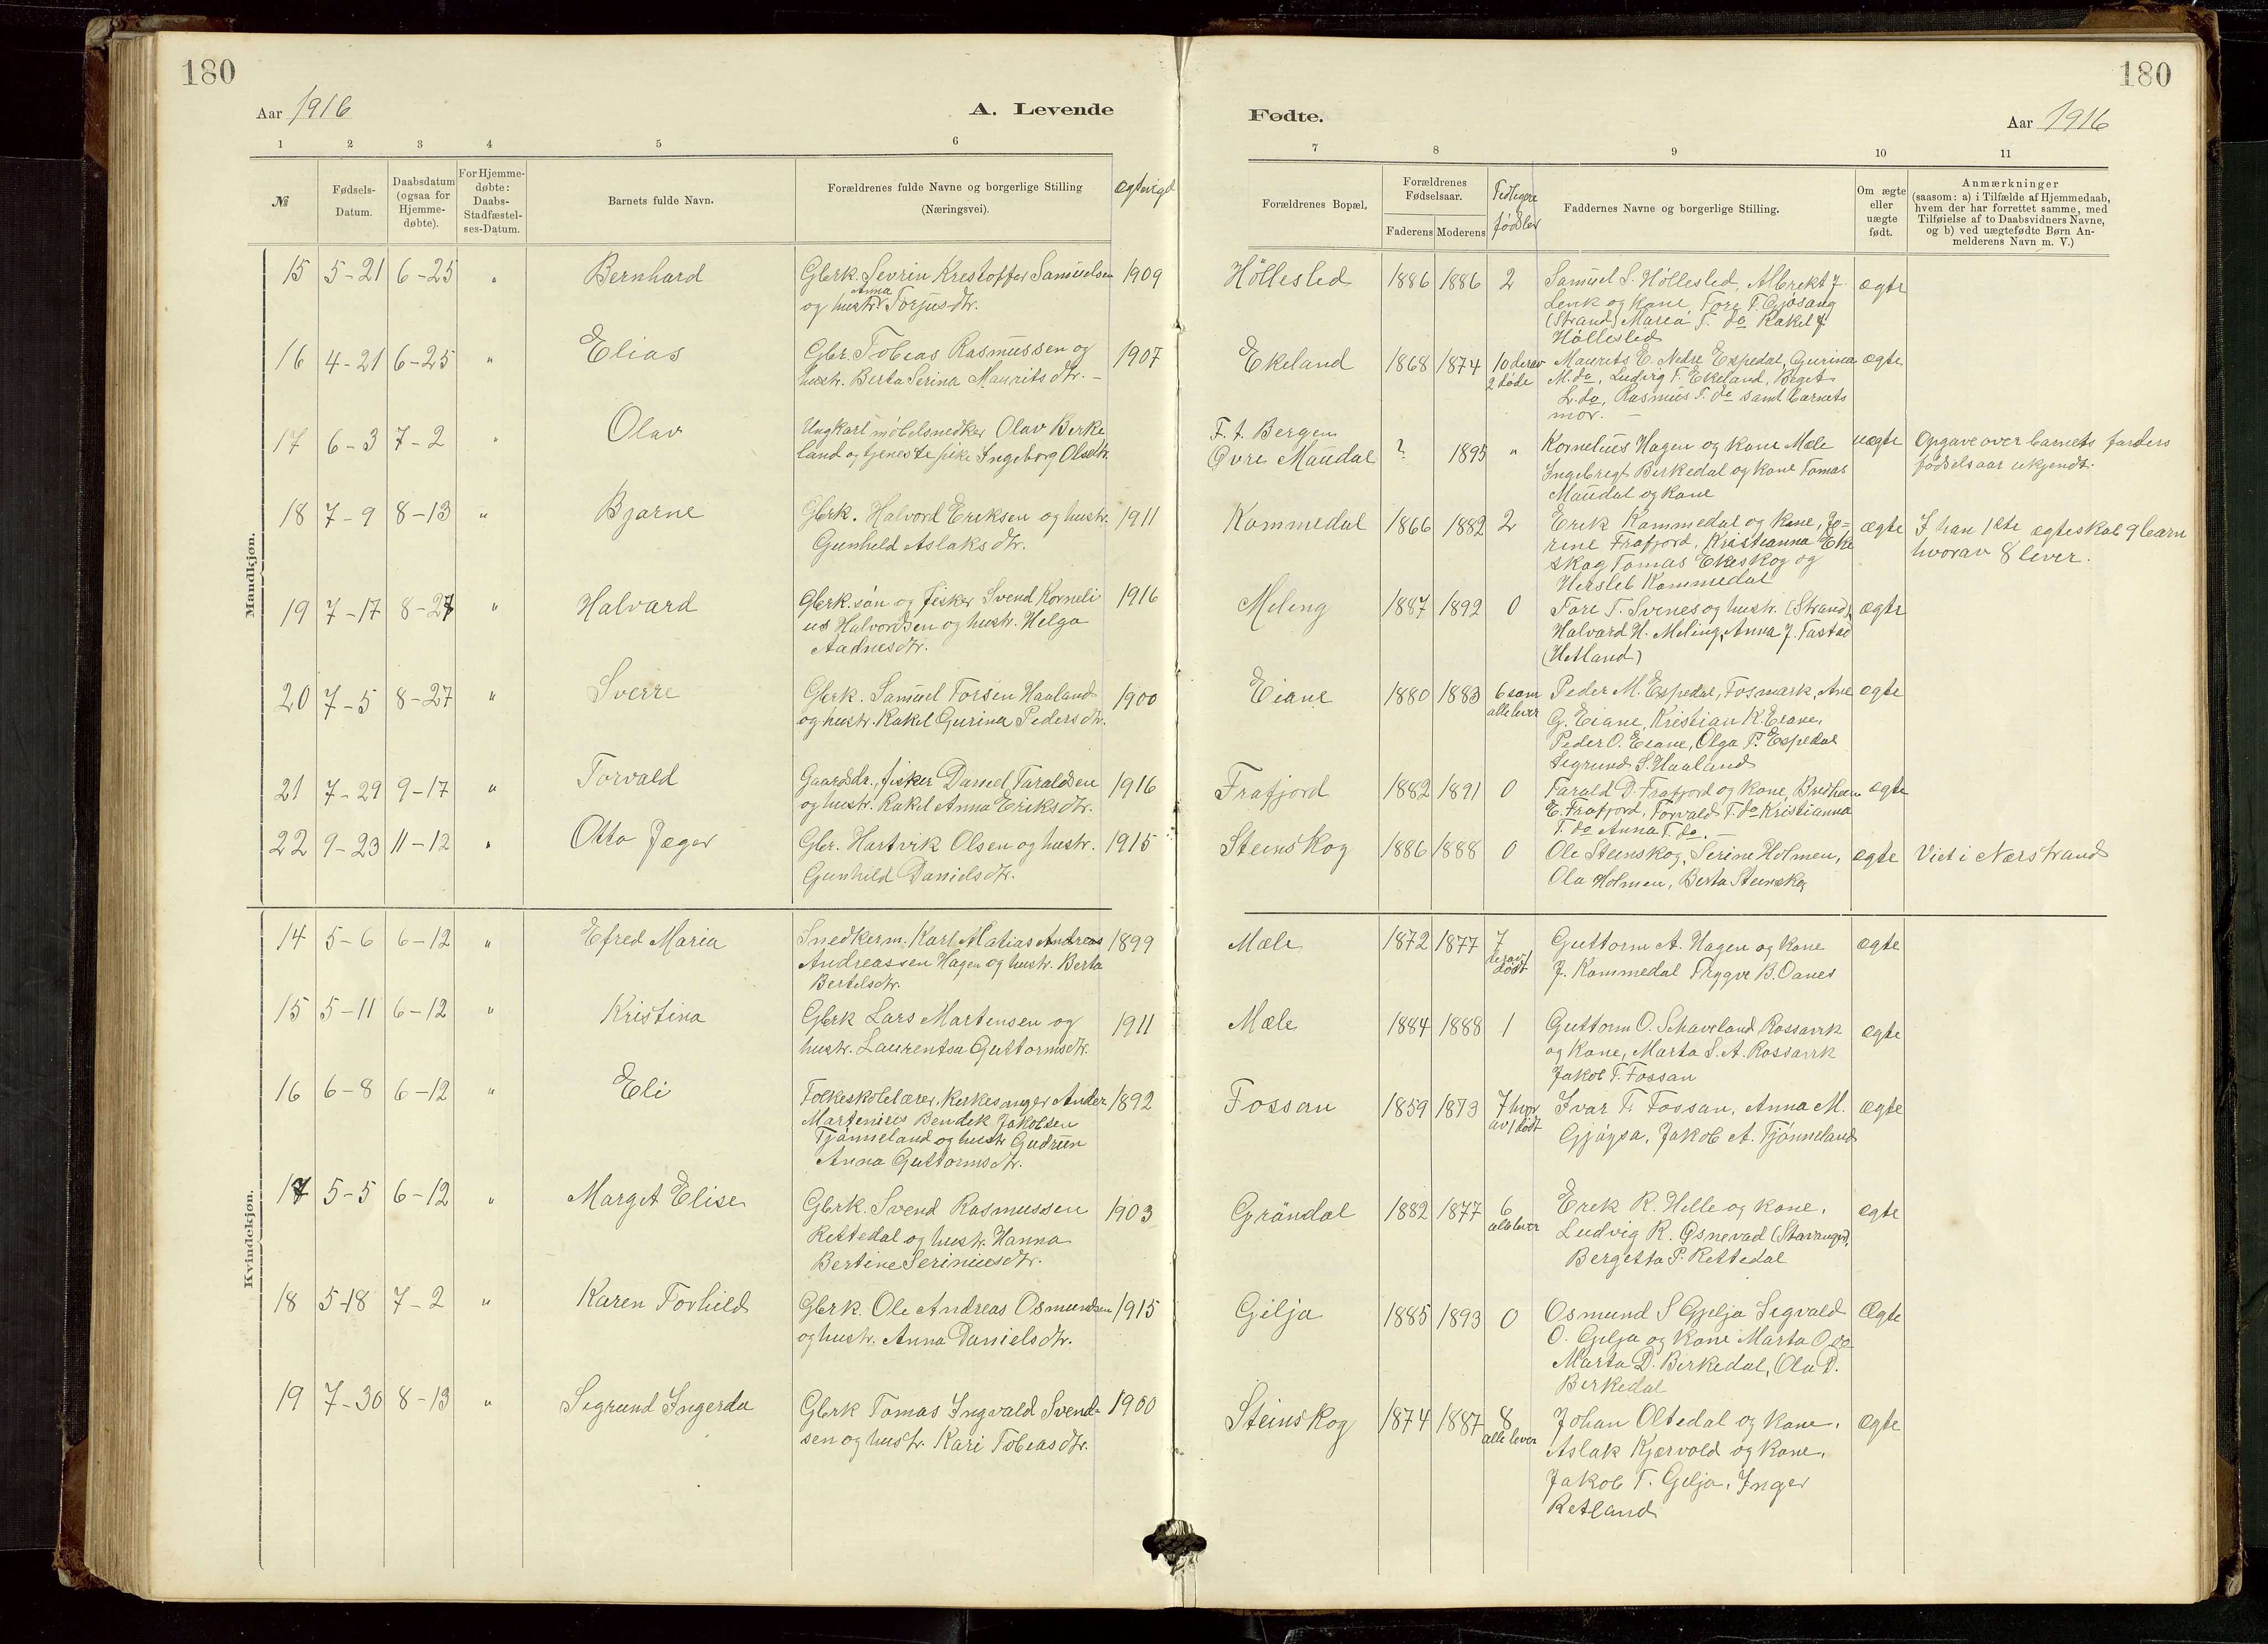 180
Aar 1916
A. Levende
1 2 3 4 5 6
№
Fødsels-Datum.
Daabsdatum (ogsaa for Hjemme-døbte).
For Hjemme-døbte: Daabs-Stadfæstel-ses-Datum.
Barnets fulde Navn.
Forældrenes fulde Navne og borgerlige Stilling
(Næringsvei).
ægteviet
Mandkjøn.
15 5-21 6-25 " Bernhard Gbrk. Sevrin Krestoffer Samuelsen 1909
og hustr. Anna Torjusdtr.
16 4-21 6-25 " Elias Gbr. Tobias Rasmussen og 1907
hustr. Berta Serina Mauritsdtr. –
17 6-3 7-2 " Olav Ungkarl møbelsnedker Olav Birke
land og tjenestepike Ingeborg Olsdtr.
18 7-9 8-13 " Bjarne Gbrk. Halvord Eriksen og hustr. 1911
Gunhild Aslaksdtr.
19 7-17 8-27 " Halvard Gbrk.søn og fisker Svend Korneli 1916
us Halvordsen og hustr. Helga
Aadnesdtr.
20 7-5 8-27 " Sverre Gbrk. Samuel Torsen Haaland 1900
og hustr. Rakel Gurina Pedersdtr.
21 7-29 9-17 " Torvald Gaardbr., fisker Daniel Taraldsen 1916
og hustr. Rakel Anna Eriksdtr.
22 9-23 11-12 " Otto Jeger Gbr. Hartvik Olsen og hustr. 1915
Gunhild Danielsdtr.
Kvindekjøn.
14 5-6 6-12 " Efred Maria Snedkerm. Karl Matias Andreas 1899
Andreassen Hagen og hustr. Berta
Bertelsdtr.
15 5-11 6-12 " Kristina Gbrk Lars Martensen og 1911
hustr. Laurentsa Guttormsdtr.
16 6-8 6-12 " Eli Folkeskolelærer, kirkesanger Ander 1892
Martenius Bendik Jakobsen
Tjønneland og hustr Gudrun
Anna Guttormsdtr.
17 5-5 6-12 " Margit Elise Gbrk. Svend Rasmussen 1903
Rettedal og hustr. Hanna
Bertine Seriniusdtr.
18 5-18 7-2 " Karen Torhild Gbrk. Ole Andreas Osmundsen 1915
og hustr. Anna Danielsdtr.
19 7-30 8-13 " Sigrund Ingerda Gbrk Tomas Ingvald Svend- 1900
sen og hustr. Kari Tobiasdtr.
180
Fødte.
Aar 1916
7 8 9 10 11
Forældrenes Bopæl.
Forældrenes Fødselsaar.
Faderens Moderens
Tidligere fødsler
Faddernes Navne og borgerlige Stilling.
Om ægte eller uægte født.
Anmærkninger
(saasom: a) i Tilfælde af Hjemmedaab,
hvem der har forrettet samme, med
Tilføielse af to Daabsvidners Navne,
og b) ved uægtefødte Børn An-
melderens Navn m. V.)
Høllesled 1886 1886 2 Samuel S. Høllesled, Albrekt J. ægte
Levik og kone, Tore T. Gjøsang
(Strand) Maria T. do Rakel J
Høllesled
Ekeland 1868 1874 10 derav 2 døde Maurits E. Nedre Espedal, Gurina ægte
M. do, Ludvig T. Ekeland, Birget
L. do, Rasmus T. do samt barnets
mor. –
F. t. Bergen
Øvre Maudal ? 1895 " Kornelius Hagen og kone Mæle uægte Opgave over barnets farders
Ingebregt Birkedal og kone Tomas fødselsaar ukjendt.
Maudal og kone
Kommedal 1866 1882 2 Erik Kommedal og kone, Jo- ægte I han 1ste ægteskab 9 barn
rine Frafjord, Kristianna Eke hvorav 8 lever.
skog Tomas Ekeskog og
Hersleb Kommedal
Meling 1887 1892 0 Tore T. Svines og hustr. (Strand), ægte
Halvard H. Meling, Anna J. Tastad
(Hetland)
Eiane 1880 1883 6 som alle lever Peder M. Espedal, Fosmark, Ane ægte
G. Eiane, Kristian K. Eiane,
Peder O. Eiane, Olga P. Espedal
Sigrund S. Haaland
Frafjord 1882 1891 0 Tarald D. Frafjord og kone, ægte
E. Frafjord, Torvald T. do Kristianna
T. do Anna T. do. –
Steinskog 1886 1888 0 Ole Steinskog, Serine Holmen, ægte Viet i Nærstrand
Ola Holmen, Berta Steinskog
Mæle 1872 1877 7 derav 1 dødt Guttorm A. Hagen og kone ægte
J. Kommedal Trygve B. Oanes
Mæle 1884 1888 1 Guttorm O. Schaveland Rossavik ægte
og kone, Marta S. A. Rossavik
Jakob T. Fossan
Fossan 1859 1873 7 hvor av 1 dødt Ivar T. Fossan, Anna M. ægte
Gjøysa, Jakob A. Tjønneland
Grøndal 1882 1877 6 alle lever Erik R. Helle og kone, ægte
Ludvig R. Gsnevad (Stavanger),
Bergetta P. Rettedal
Gilja 1885 1893 0 Osmund S Gjilja Sigvald Ægte
O. Gilja og kone Marta O do
Marta D. Birkedal, Ola D.
Birkedal
Steinskog 1874 1887 8 alle lever Johan Oltedal og kone, ægte
Aslak Kjærvold og kone,
Jakob T. Gilja, Inger
Retland